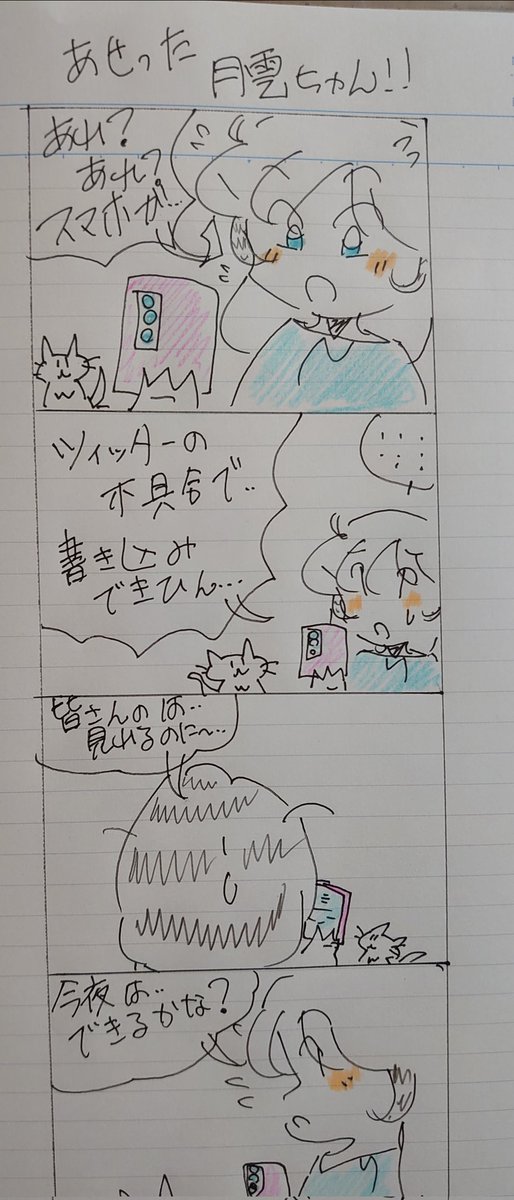 あせった 月雲ちゃん!!
あれ?
あれ?
スマホが…
ツイッターの
不具合で..
書き込み
できひん…
皆さんのは..
見れるのに〜…
今夜は..
できるかな?